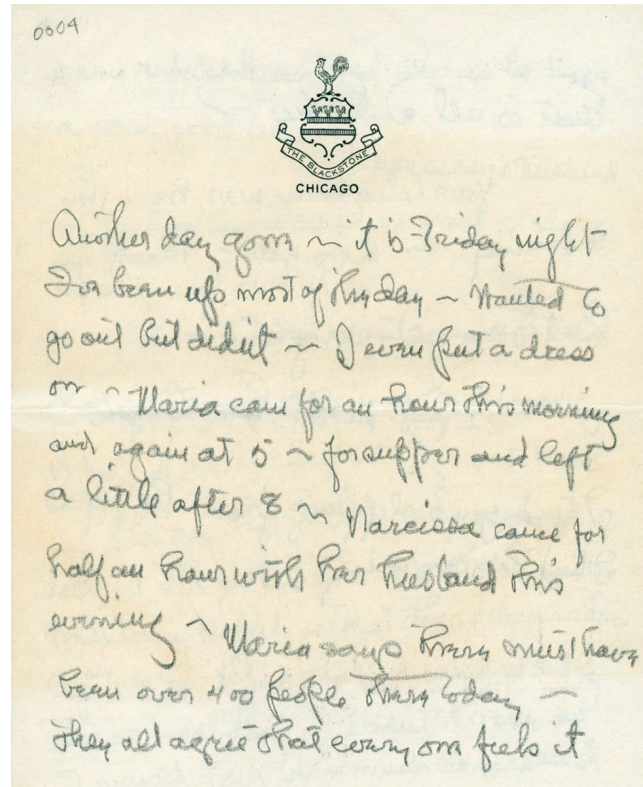 0004
THE BLACKSTONE
CHICAGO
Another day gone ~ it is Friday night
I've been up most of the day ~ Wanted to
go out but didn't ~ I even put a dress
on ~ Maria came for an hour this morning
and again at 5 ~ for supper and left
a little after 8 ~ Narcissa came for
half an hour with her husband this
evening ~ Maria says there must have
been over 400 people there today ~
They all agree that every one feels it